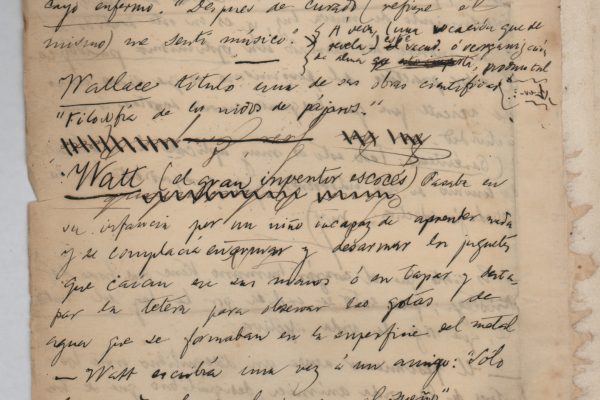 cayó enfermo. "Después de curado (refiere él
mismo) me sentí músico." { A veces, (una vocación que se
revela
Wallace tituló una de sus obras científicas
"Filosofía de los nidos de pájaros."
Watt (el gran inventor escocés) Pasaba en
su infancia por un niño incapaz de aprender nada
y se complacía en armar y desarmar los juguetes
que caían en sus manos ó en tapar y desta-
par la tetera para observar las gotas de
agua que se formaban en la superficie del metal
— Watt escribía una vez á un amigo: "Solo
el sueño"